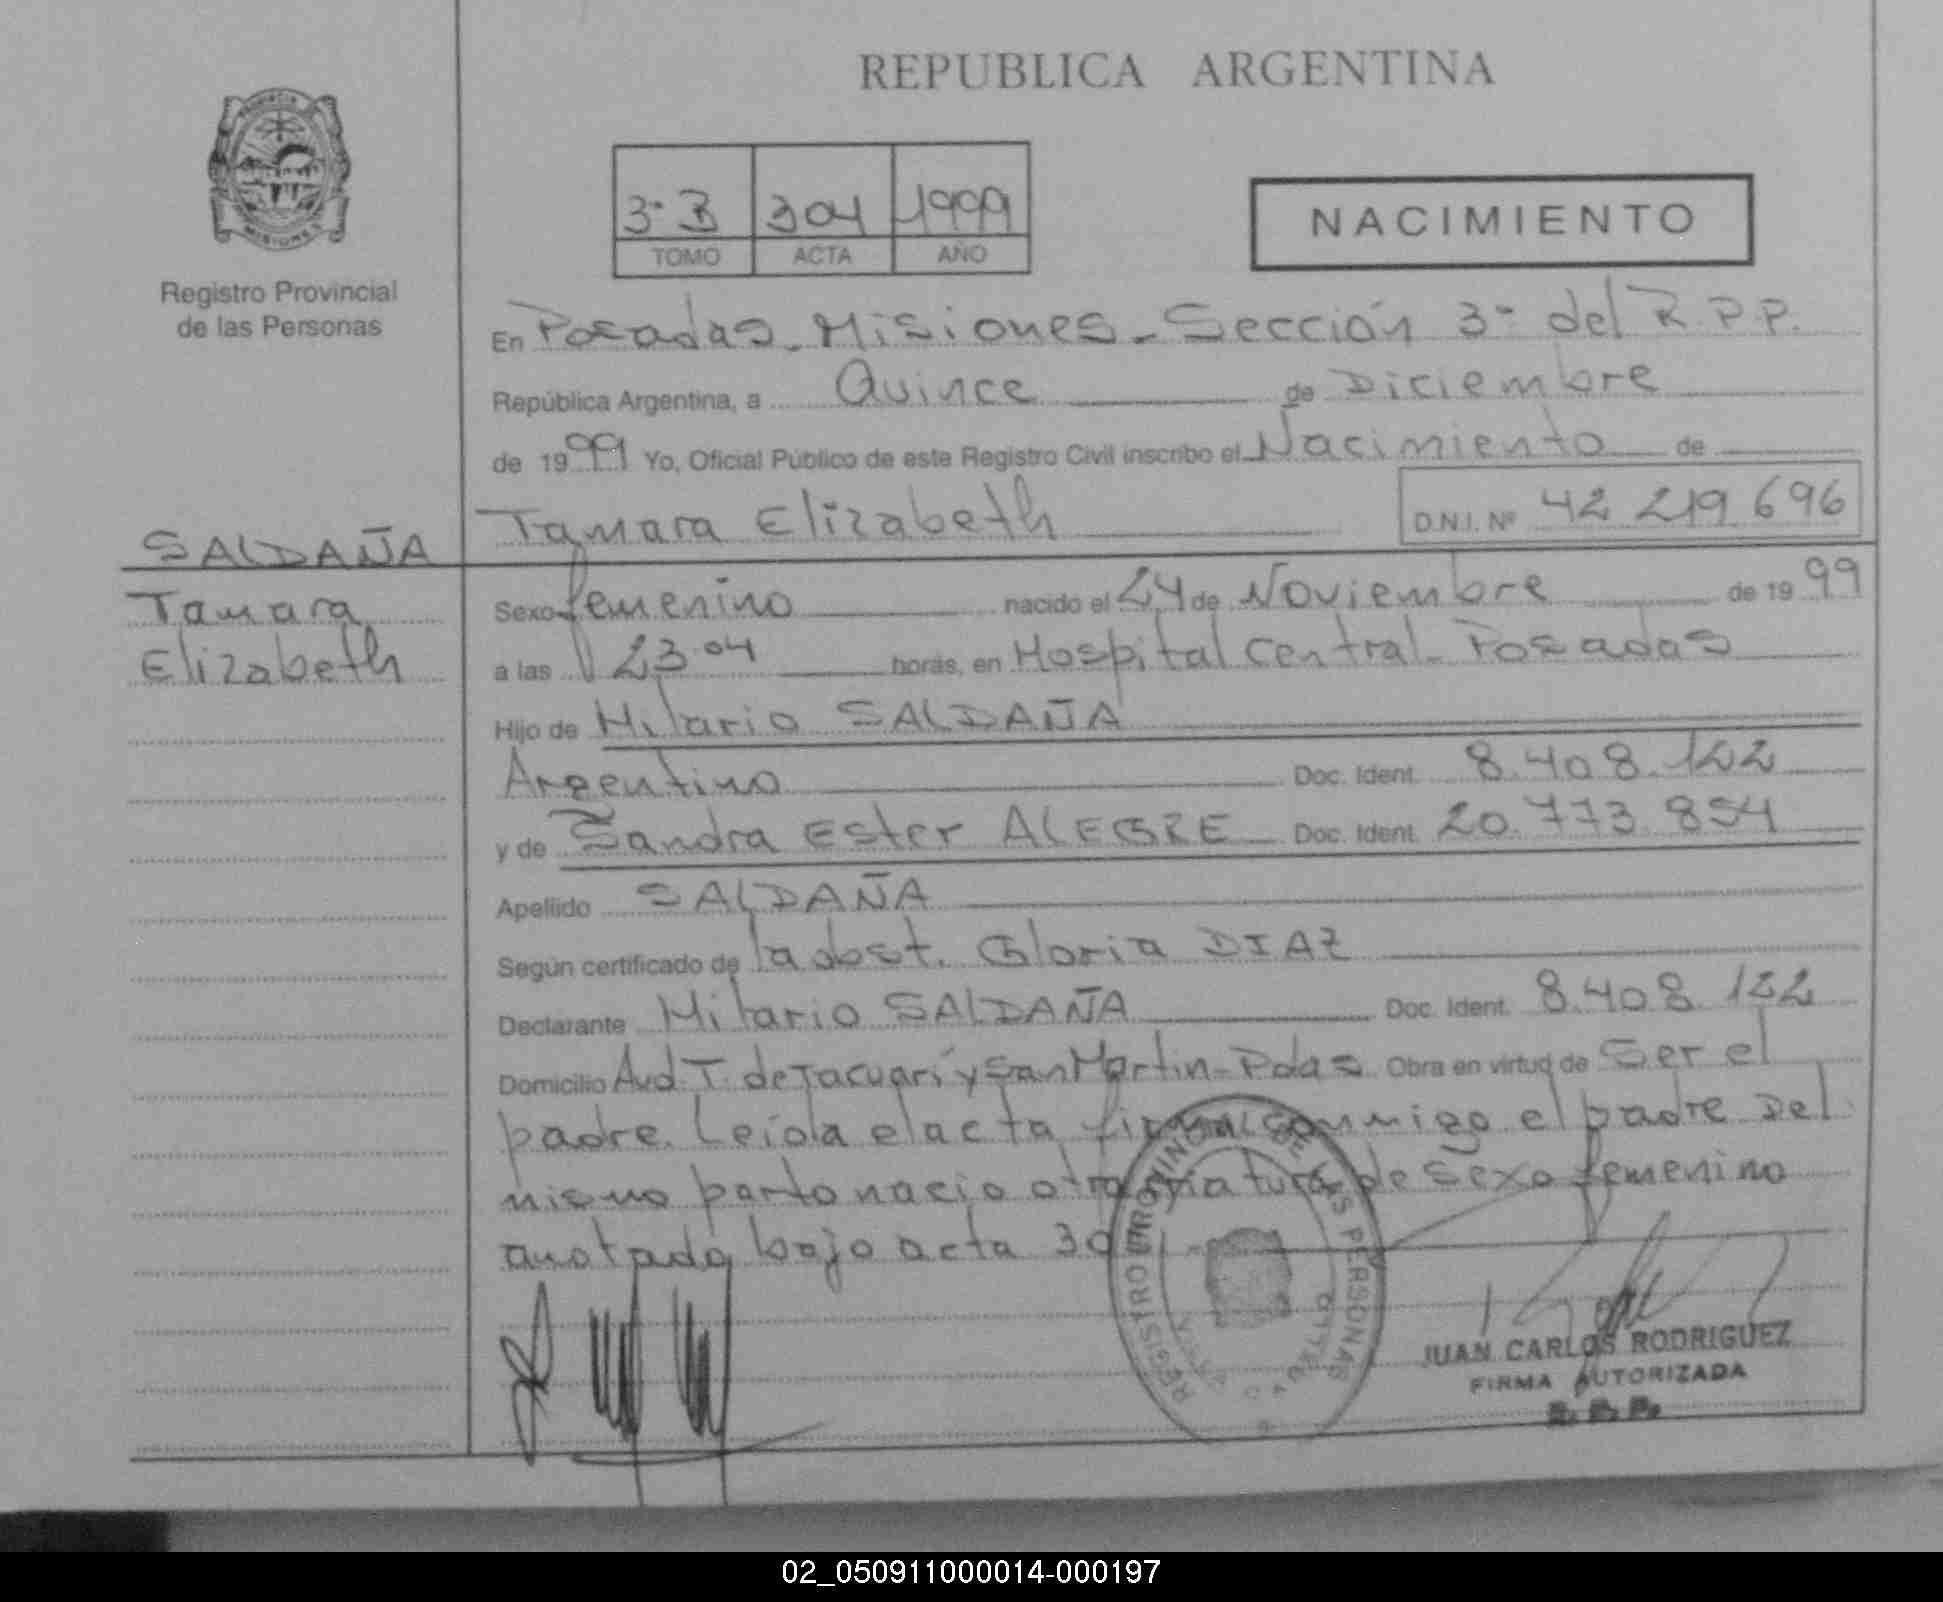 REPUBLICA ARGENTINA
3º B 304 1999
TOMO ACTA AÑO
NACIMIENTO
MISIONES
Registro Provincial
de las Personas
En Posadas - Misiones - Sección 3º del R.P.P.
República Argentina, a Quince de Diciembre
de 1999 Yo, Oficial Público de este Registro Civil inscribo el Nacimiento de
Tamara Elizabeth D.N.I. Nº 42 219 696
SALDAÑA
Tamara
Elizabeth
Sexo femenino nacido el 24 de Noviembre de 1999
a las 23 04 horas, en Hospital Central - Posadas
Hijo de Hilario SALDAÑA
Argentino Doc. Ident. 8.408.122
y de Sandra Ester ALEGRE Doc. Ident. 20.773.854
Apellido SALDAÑA
Según certificado de la obst. Gloria DIAZ
Declarante Hilario SALDAÑA Doc. Ident. 8.408.122
Domicilio Avd. T. de Tacuarí y San Martin - Pdas Obra en virtud de Ser el
padre. Leída el acta firma conmigo el padre Del
mismo parto nacio otra criatura de sexo femenino
anotado bajo acta
REGISTRO PROVINCIAL DE LAS PERSONAS
JUAN CARLOS RODRIGUEZ
FIRMA AUTORIZADA
02_050911000014-000197